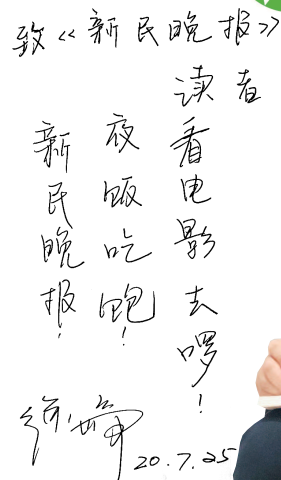 致《新民晚报》
读者
新民晚报!
夜饭吃饱!
看电影去啰!
徐峥
20.7.25